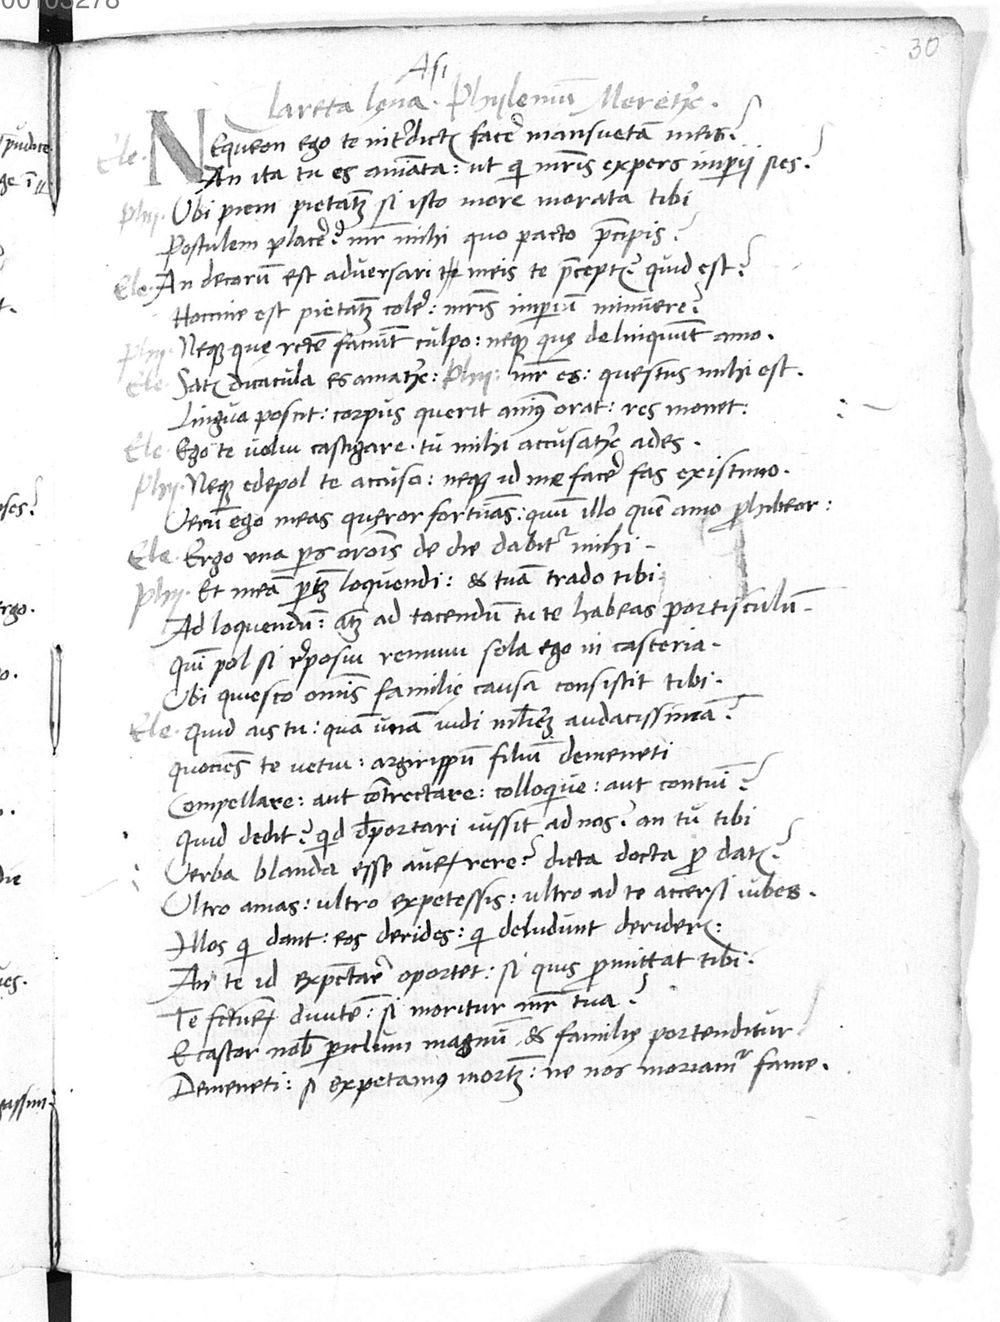 00103278
30
Asi
Clareta lęna. Phyleniū Meretꝭ.
Ele. NEqueon ego te int̄dictꝭ facē mansuetā meis?
An ita tu es aīata: ut qͥ mr̄is expers imperij sies?
Phy. Ubi piem pietatꝫ si isto more morata tibi
Postulem placē? mr̄ mihi quo pacto p̄cipis?
Ele. An decorū est adversari te meis te p̄ceptꝭ? quid est?
Hoccine est pietatꝫ colē: mr̄is imperiū minuere?
Phy. Neqꝫ quę rctē faciūt culpo: neqꝫ quę delinquūt amo.
Ele. Satꝭ dicacula es amatꝭ: Phy: mr̄ es: questus mihi est.
Lingua poscit: corpus querit aniꝰ orat: res monet:
Ele. Ego te uolui castigare. tu mihi accusatꝭ ades.
Phy. Neqꝫ edepol te accuso: neqꝫ id me facē fas existimo.
Verū ego meas queror fortūas: quū illo quē amo ꝓhibeor:
Ele. Ergo una pͣs orōis de die dabitᷣ mihi.
Phy. Et meā ꝑtꝫ loquendi: & tuā trado tibi
Ad loquendū: atꝫ ad tacendū tu te habeas portisculū.
quī pol si reposiui remum sola ego in casteria.
Ubi quiesco om̄is familię causa consistit tibi.
Ele. Quid ais tu: quā unā uidi mlīeꝫ audacissimā?
quociēs te uetui: argirippū filiū demeneti
Compellare: aut cōtrectare: colloquiue: aut contui?
Quid dedit? qͥd deportari iussit ad nos? an tu tibi
Verba blanda esse aurꝝ rere? dicta docta ꝓ datꝭ?
Ultro amas: ultro expetessis: ultro ad te accersi iubes.
Illos qͥ dant: eos derides: qͥ deludunt deriderꝭ:
An te id expectarē oportet: si quis ꝓmittat tibi:
Te fcturꝝ diuitē: si moritur mr̄ tua?
Ecastor nob̄ periclum magnū & familię portenditur
Demeneti: si expetamꝰ mortꝫ: ne nos moriamᷣ fame.